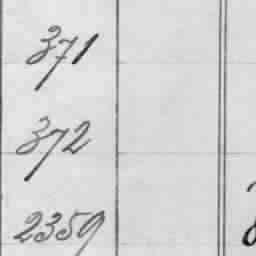 371
372
2359